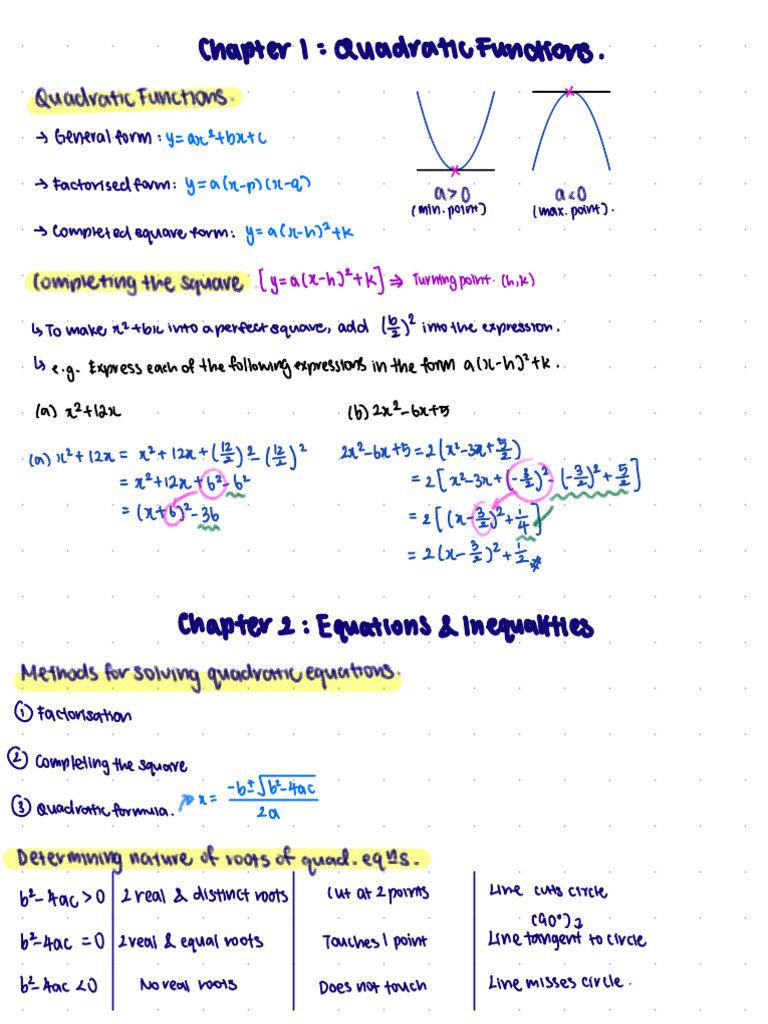 Chapter 1 : Quadratic Functions.
Quadratic Functions.
→ General form : y = ax²+bx+c
→ Factorised form: y = a(x-p)(x-q)
→ Completed square form: y = a(x-h)²+k
a>0
(min. point)
a<0
(max. point).
Completing the square [y=a(x-h)²+k] ⇒ Turning point (h,k)
↳ To make x²+bx into a perfect square, add (b/2)² into the expression.
↳ e.g. Express each of the following expressions in the form a(x-h)²+k.
(a) x²+12x
(b) 2x²-6x+5
(a) x²+12x = x²+12x+(12/2)²-(12/2)²
= x²+12x+6²-6²
= (x+6)²-36
2x²-6x+5 = 2(x²-3x+5/2)
= 2[x²-3x+(-3/2)²-(-3/2)²+5/2]
= 2[(x-3/2)²+1/4]
= 2(x-3/2)²+1/2 #
Chapter 2 : Equations & Inequalities
Methods for solving quadratic equations.
① Factorisation
② Completing the square
③ Quadratic formula. ⇒ x = -b±√b²-4ac / 2a
Determining nature of roots of quad. eqⁿs.
b²-4ac>0 2 real & distinct roots Cut at 2 points Line cuts circle
(90°)
b²-4ac =0 2 real & equal roots Touches 1 point Line tangent to circle
b²-4ac <0 No real roots Does not touch Line misses circle.